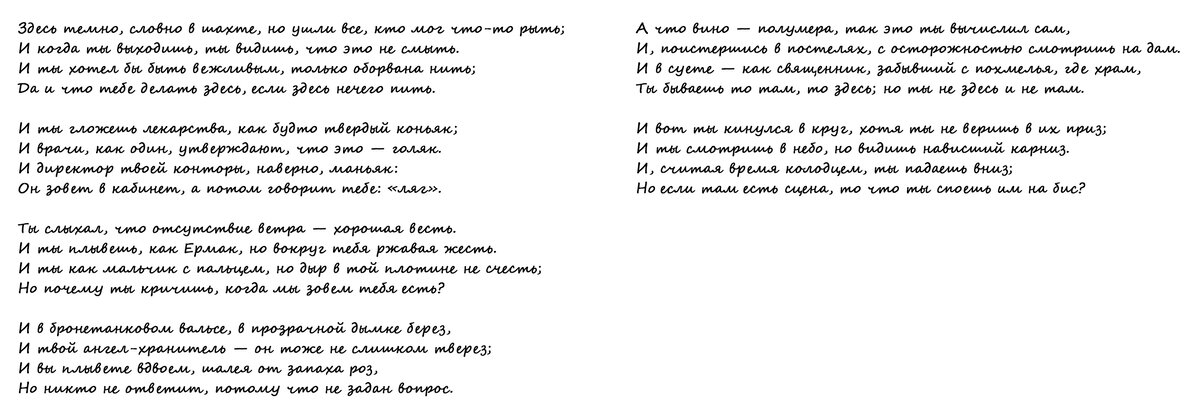 Здесь темно, словно в шахте, но ушли все, кто мог что-то рыть;
И когда ты выходишь, ты видишь, что это не смыть.
И ты хотел бы быть вежливым, только оборвана нить;
Да и что тебе делать здесь, если здесь нечего пить.

И ты гложешь лекарства, как будто твердый коньяк;
И врачи, как один, утверждают, что это — голяк.
И директор твоей конторы, наверно, маньяк:
Он зовет в кабинет, а потом говорит тебе: «ляг».

Ты слыхал, что отсутствие ветра — хорошая весть.
И ты плывешь, как Ермак, но вокруг тебя ржавая жесть.
И ты как мальчик с пальцем, но дыр в той плотине не счесть;
Но почему ты кричишь, когда мы зовем тебя есть?

И в бронетанковом вальсе, в прозрачной дымке берез,
И твой ангел-хранитель — он тоже не слишком тверез;
И вы плывете вдвоем, шалея от запаха роз,
Но никто не ответит, потому что не задан вопрос.

А что вино — полумера, так это ты вычислил сам,
И, поистершись в постелях, с осторожностью смотришь на дам.
И в суете — как священник, забывший с похмелья, где храм,
Ты бываешь то там, то здесь; но ты не здесь и не там.

И вот ты кинулся в круг, хотя ты не веришь в их приз;
И ты смотришь в небо, но видишь нависший карниз.
И, считая время колодцем, ты падаешь вниз;
Но если там есть сцена, то что ты споешь им на бис?